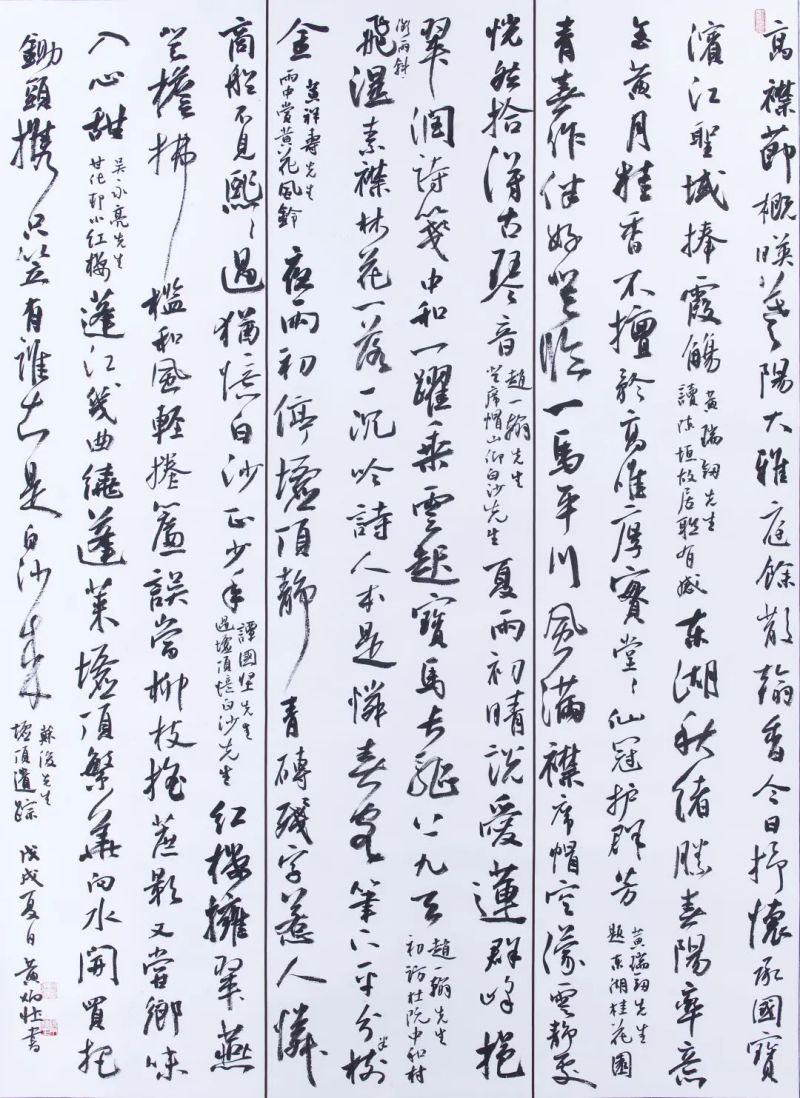 高襟節概暎葵陽大雅庭餘散翰香今日抒懷承國寶
濱江聖域捧霞觴
黃瑞翎先生
讀陳垣故居聯有感
東湖秋绪勝春陽率意
金黃月桂香不擅於高唯厚實堂〻仙冠护群芳
黃瑞翎先生
題東湖桂花園
青春作伴好登臨一馬平川風滿襟席帽空濛雲靜處
恍然拾得古琴音
趙一翰先生
登席帽山仰白沙先生
夏雨初晴說愛蓮群峰挹
翠潤詩箋中和一躍乘雲起寶馬長驅上九天
趙一翰先生
初訪杜阮中和村
雨斜
飛濕素襟林花一落一沉吟詩人本是憐春客筆下平分樹
半
金
黃祥壽先生
雨中賞黃花風鈴
夜雨初停墟頂靜青磚殘字惹人憐
商船不見熙〻過猶憶白沙正少年
譚國堅先生
過墟頂憶白沙先生
紅樓擁翠燕
登檐拂檻和風輕捲簾誤當柳枝搖蔗影又當鄉味
入心甜
吴永亮先生
甘化邨小红楼
蓬江幾曲繞蓬萊墟頂繁華向水開買把
鋤頭攜只笠有誰知是白沙來
蘇俊先生
墟頂遺踪
戊戌夏日黃炳壯書